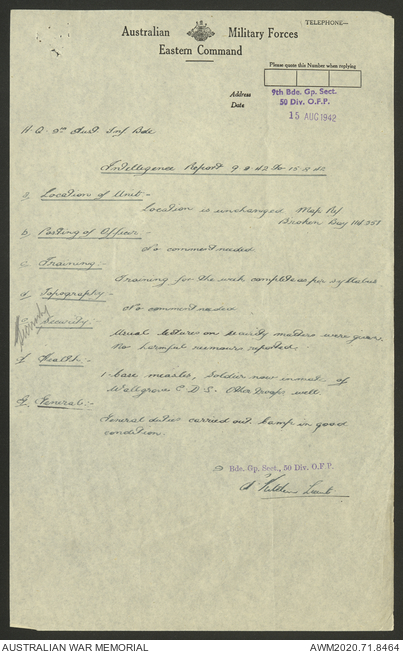 TELEPHONE—
Australian Military Forces
Eastern Command
Please quote this Number when replying
Address 9th Bde. Gp. Sect.
50 Div. O.F.P.
Date 15 AUG 1942
H.Q. 9th Aust Inf Bde
Intelligence Report 9.8.42 to 15.8.42
a. Location of Unit:-
Location is unchanged Map Ref
Broken Bay
b. Posting of Officer:-
No comment needed.
c. Training:-
Training for the week completed as per syllabus
d. Topography:-
No comment needed
Security:-
Usual lectures on security matters were given.
No harmful rumours reported.
f. Health:-
1 case measles, soldier now inmate of
Wallgrove C.D.S. Other troops well.
g. General:-
General duties carried out. Camp in good
condition.
9 Bde. Gp. Sect., 50 Div. O.F.P.
Lieut
AUSTRALIAN WAR MEMORIAL
AWM2020.71.8464